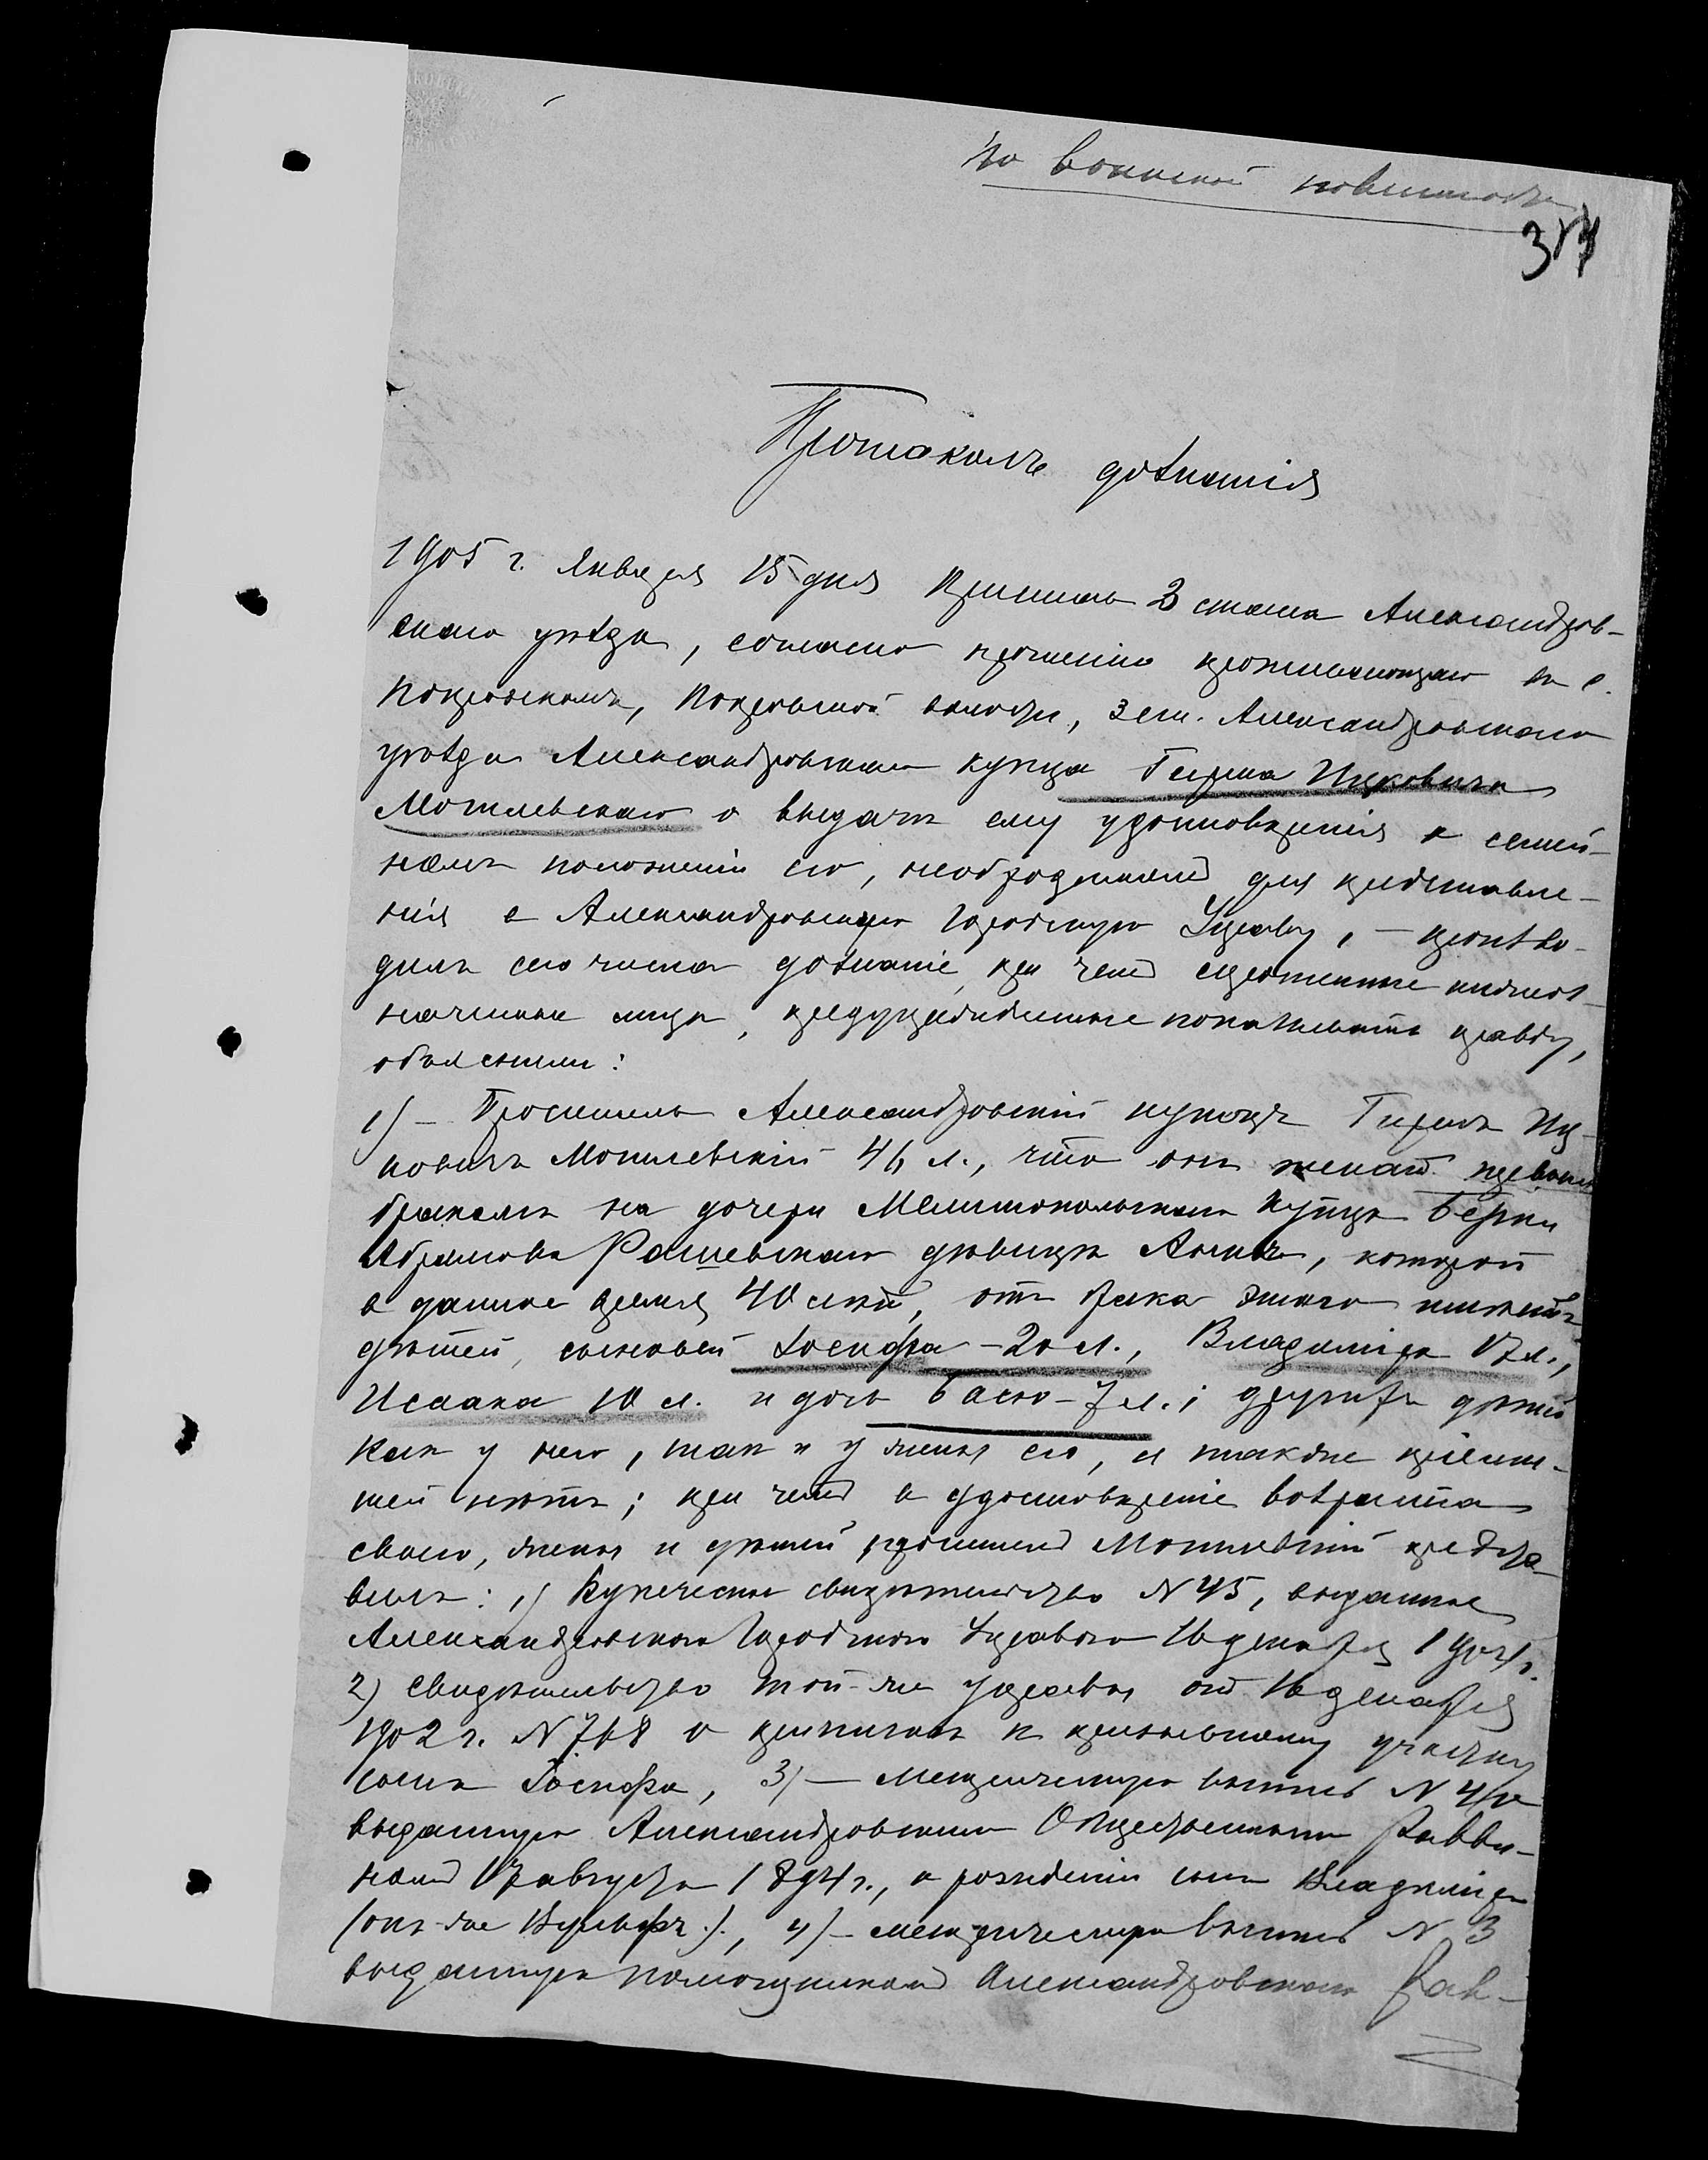 По воинской повинности
374
Протоколъ дознанія
1905 г. Января 15 дня Приставъ 3 стана Александров-
скаго уѣзда, согласно прошенію проживающаго въ с.
Покровскомъ, Покровской волости, 3 ст. Александровскаго
уѣзда Александровскаго купца Гирша Ицковича
Могилевскаго о выдачѣ ему удостовѣренія о семей-
номъ положеніи его, необходимомъ для представле-
нія въ Александровскую Городскую Управу, – произво-
дилъ сего числа дознаніе, при чемъ спрошенные нижеоз-
наченные лица, предупрежденные показывать правду,
объяснили:
1) – Проситель Александровскій купецъ Гиршъ Иц-
ковичъ Могилевскій 46 л., что онъ женатъ первымъ
бракомъ на дочери Мелитопольскаго купца Берки
Абрамова Рашевскаго дѣвицѣ Аннѣ, которой
въ данное время 40 лѣтъ, отъ брака этого имѣетъ
дѣтей, сыновей Іосифа – 20 л., Владиміра 17 л.,
Исаака 10 л. и дочь Басю – 7 л.; другихъ дѣтей
какъ у него, такъ и у жены его, а также пріемы-
шей нѣтъ; при чемъ въ удостовѣреніе возраста
своего, жены и дѣтей проситель Могилевскій предъя-
вилъ: 1) Купеческое свидѣтельство N 45, выданное
Александровскою Городскою Управою 16 декабря 1904 г.
2) Свидѣтельство той-же управы отъ 16 декабря
1902 г. N 768 о припискѣ къ призывному участку
сына Іосифа, 3) – метрическую выпись N 40
выданную Александровскимъ Общественнымъ Равви-
номъ 17 августа 1894 г., о рожденіи сына Владиміра
(онъ-же Вульфъ), 4) – метрическую выпись N 3
выданную помощникомъ Александровскаго Рав-